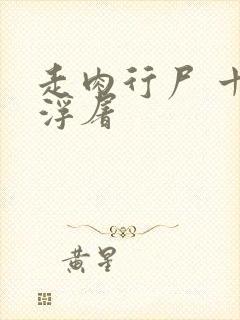 走肉行尸 十
浮屠
黄星